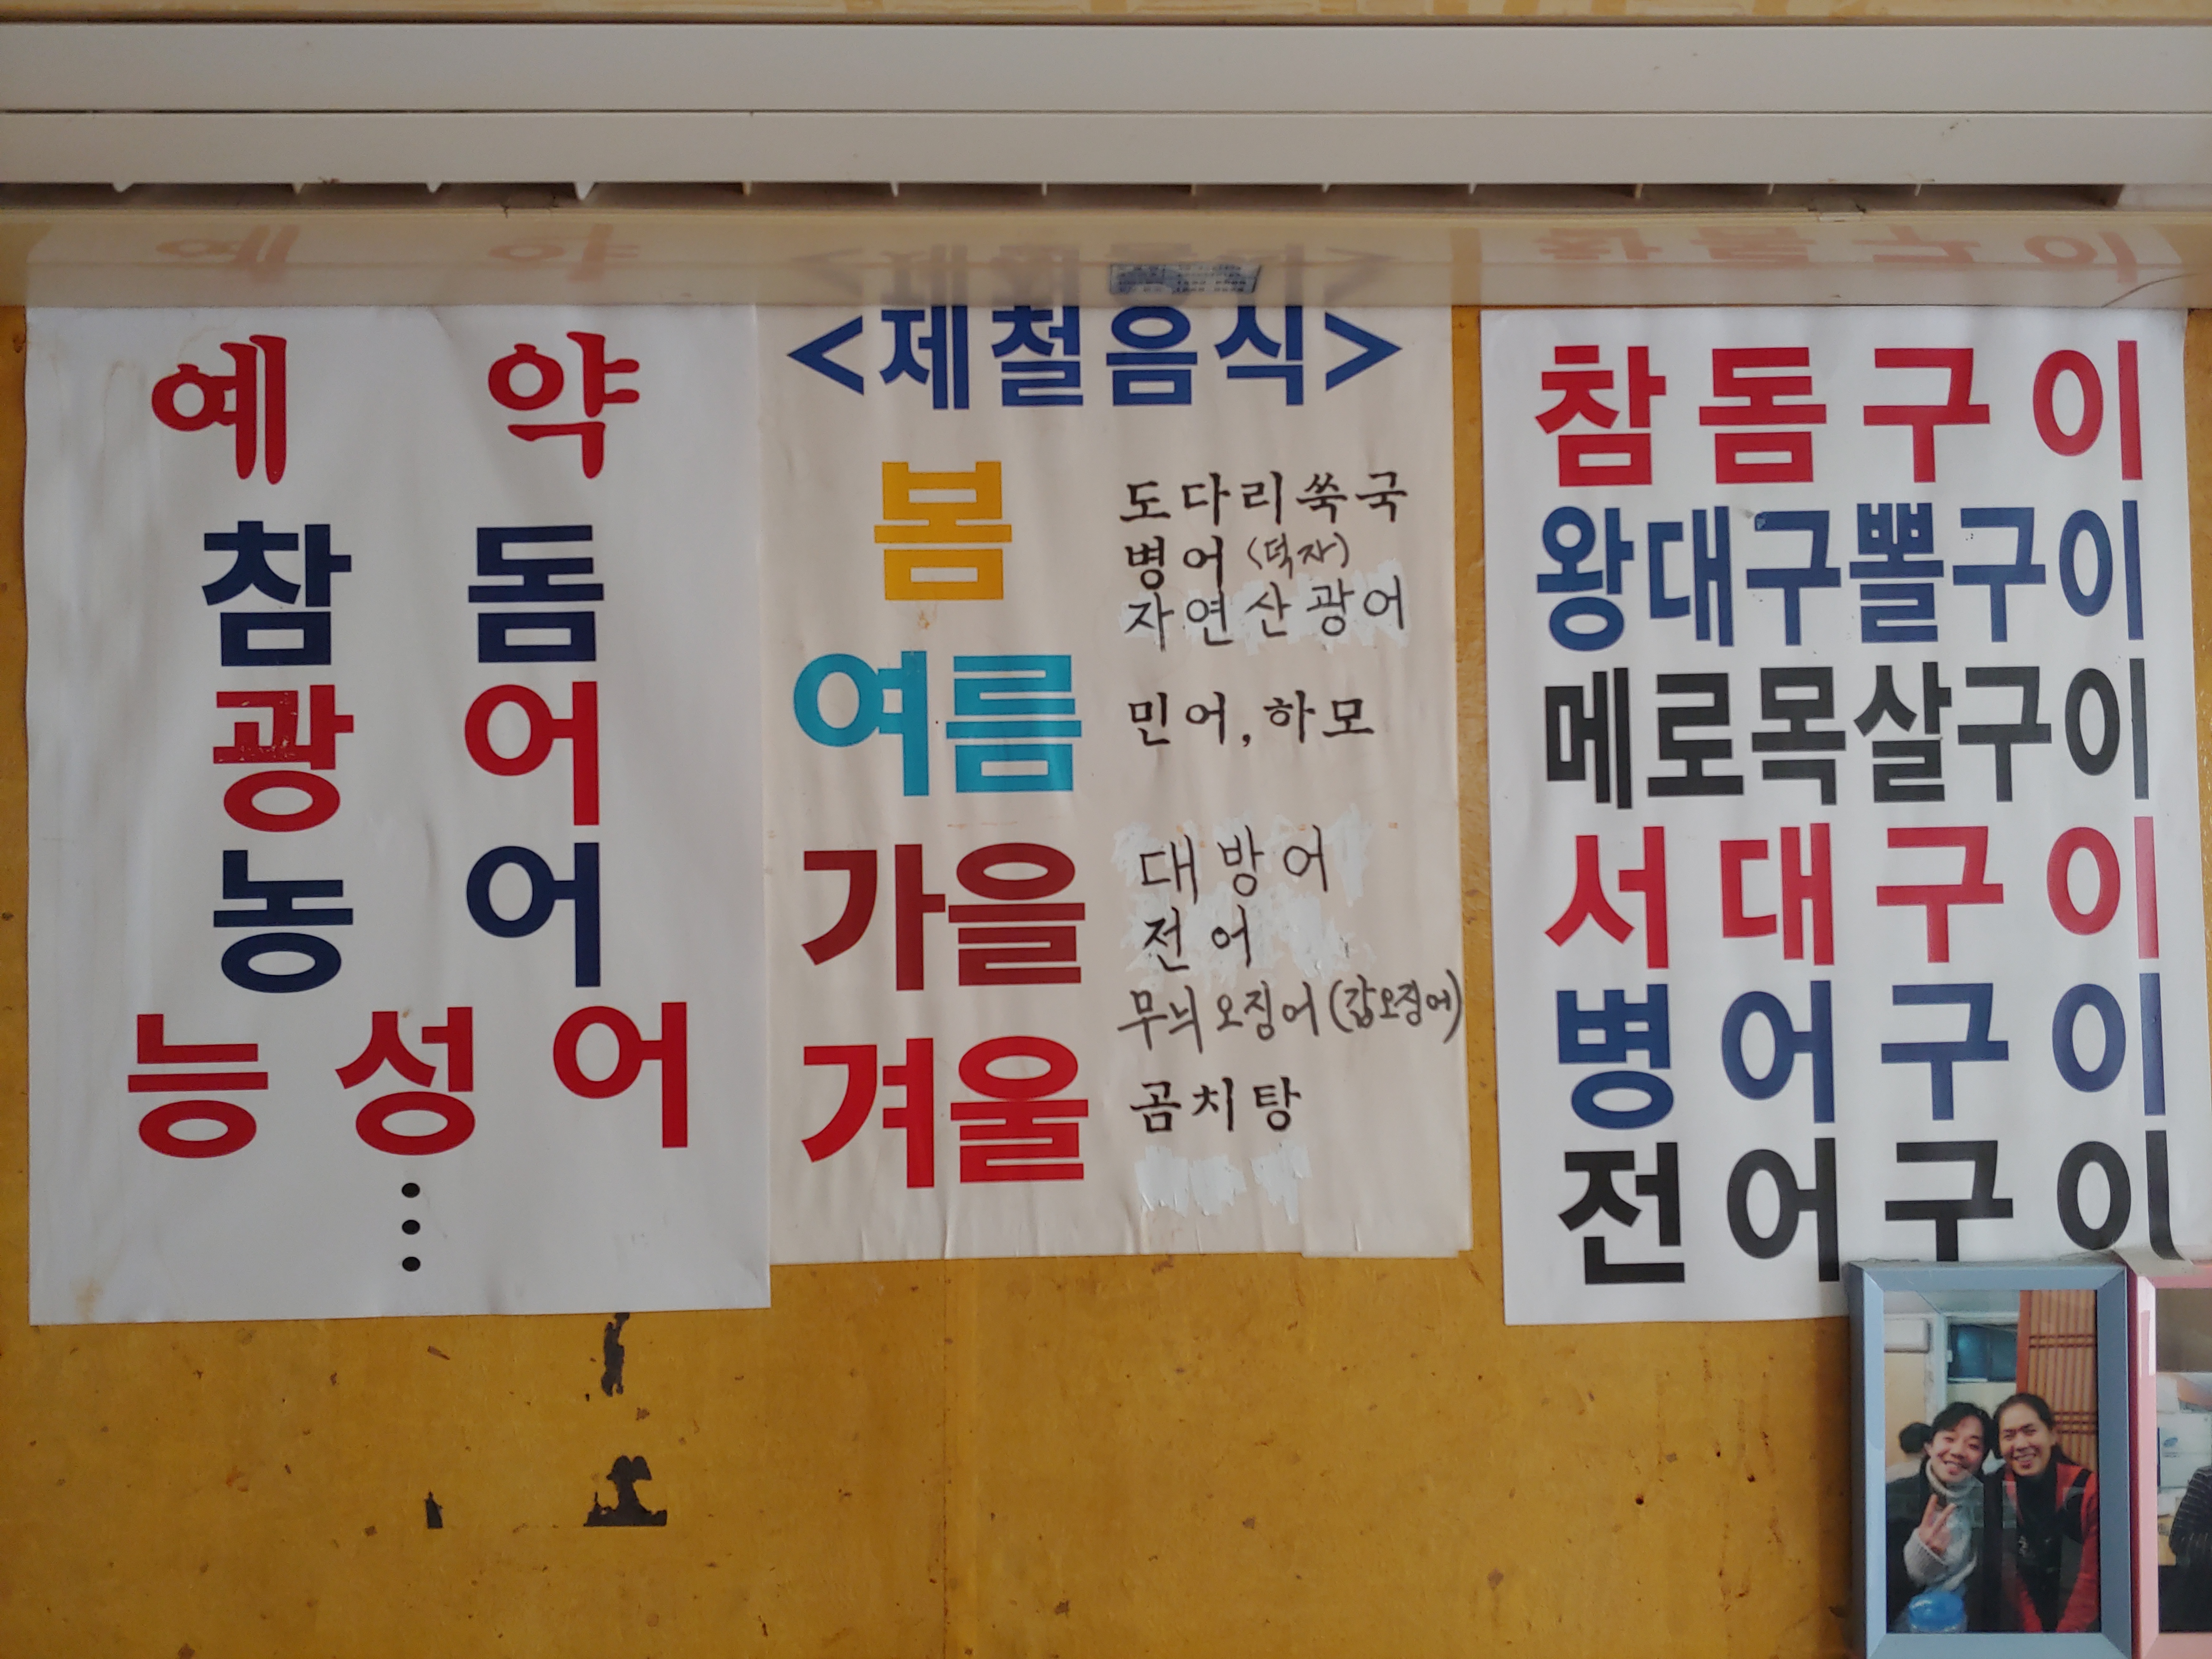 예 약
참 돔
광 어
농 어
능 성 어
<제철음식>
봄
도다리쑥국
병어 <덕자>
자연산광어
여름
민어, 하모
가을
대방어
전어
무늬오징어(갑오징어)
겨울
곰치탕
참돔구이
왕대구뽈구이
메로목살구이
서대구이
병어구이
전어구이